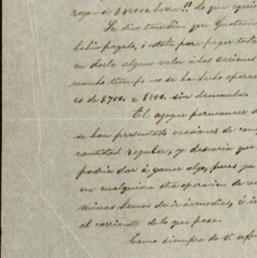 se dice tambien que Guatem
habia pagado, ó estaba para pagar toda
se darle algun valor á las acciones
mucho tiempo no se ha hecho opera
es de $700. a 800. sin demanda.
El azogue permanece
se han presentado ocasiones de com
cantidad regular, y desearia que
podria dar á ganar algo, pues ya
en cualquiera otra operacion de
minas hemos de ir á medias, ó
al corriente de lo que pasa.
Como siempre de V. af